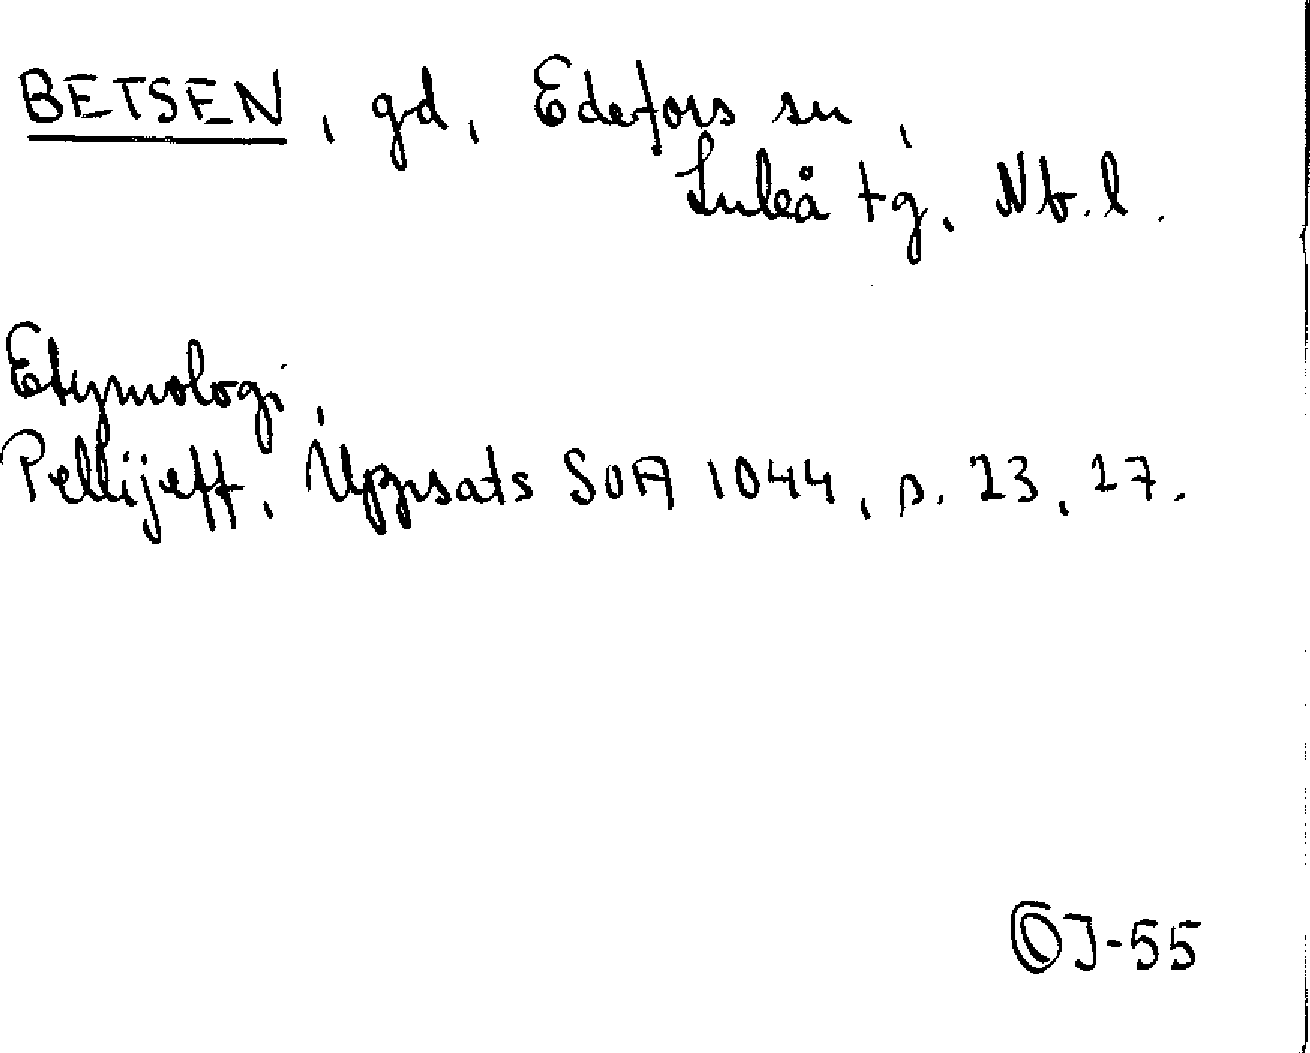 BETSEN, gd, Edefors sn,
Luleå tg, Nb.l.
Etymologi,
Pellijeff, Uppsats SOA 1044, s. 23, 27.
OJ-55